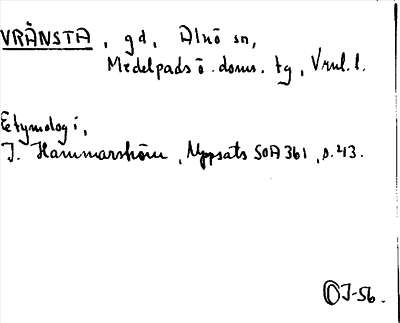 VRÄNSTA, gd, Alnö sn,
Medelpads ö. doms. tg, Vnl. l.
Etymologi,
J. Hammarström, Uppsats SOA 361, s. 43.
OJ-56.